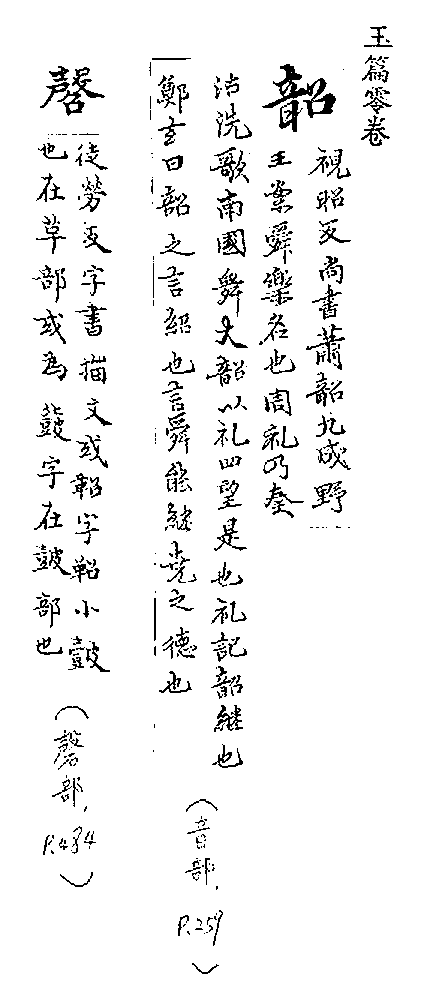 玉篇零卷
韶
視昭反尚書蕭韶九成野
王案舜樂名也周礼乃奏
沽洗歌南國舞大韶以礼四望是也礼記韶継也
鄭玄曰韶之言紹也言舜能継堯之德也
(音部,
P.259
)
磬
徒勞反字書描文或鞀字鞀小鼓
也在草部或為鼗字在鼓部也
(磬部,
P.484
)